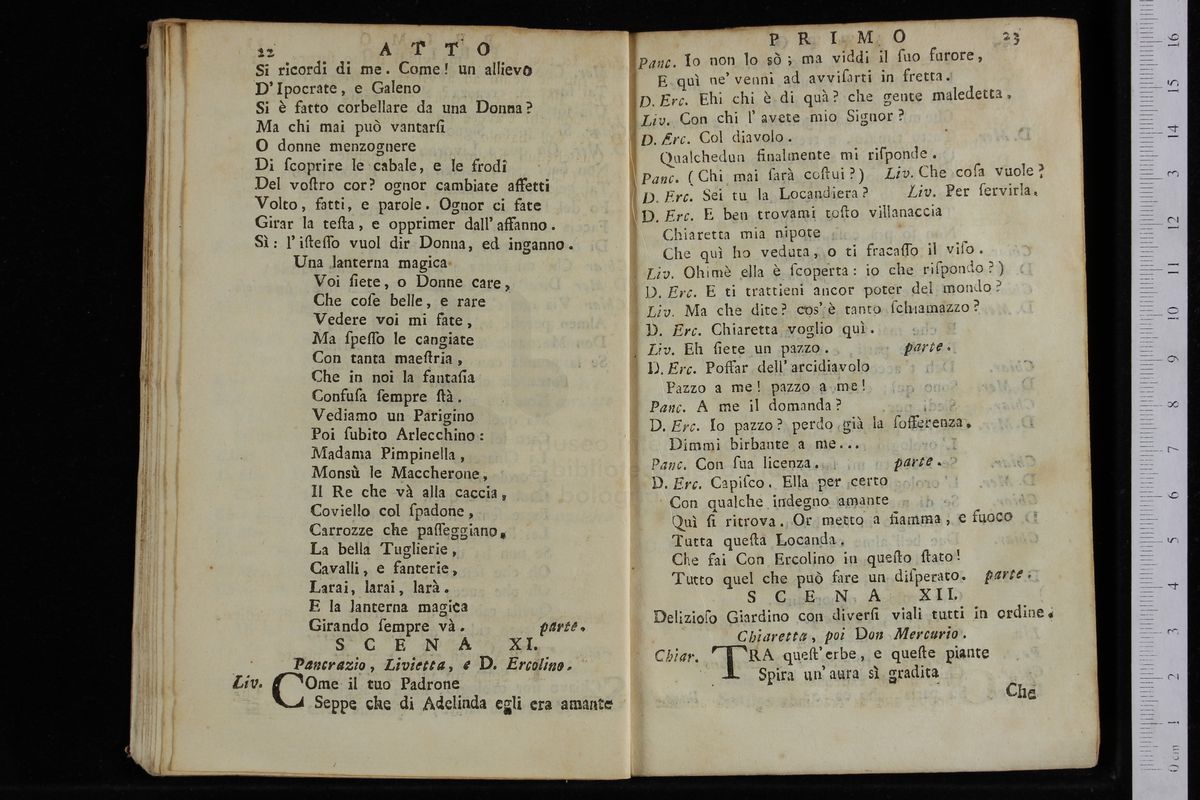 22 ATTO
Si ricordi di me. Come! un allievo
D'Ipocrate, e Galeno
Si è fatto corbellare da una Donna?
Ma chi mai può vantarſi
O donne menzognere
Di ſcoprire le cabale, e le frodi
Del voſtro cor? ognor cambiate affetti
Volto, fatti, e parole. Ognor ci fate
Girar la teſta, e opprimer dall'affanno.
Sì: l'iſteſſo vuol dir Donna, ed inganno.
Una lanterna magica
Voi ſiete, o Donne care,
Che coſe belle, e rare
Vedere voi mi fate,
Ma ſpeſſo le cangiate
Con tanta maeſtria,
Che in noi la fantaſia
Confuſa ſempre ſtà.
Vediamo un Parigino
Poi ſubito Arlecchino:
Madama Pimpinella,
Monsù le Maccherone,
Il Re che và alla caccia,
Coviello col ſpadone,
Carrozze che paſſeggiano,
La bella Tuglierie,
Cavalli, e fanterie,
Larai, larai, larà.
E la lanterna magica
Girando ſempre và. parte.
SCENA XI.
Pancrazio, Livietta, e D. Ercolino.
Liv. COme il tuo Padrone
Seppe che di Adelinda egli era amante
PRIMO 23
Panc. Io non lo sò; ma viddi il ſuo furore,
E quì ne' venni ad avviſarti in fretta.
D. Erc. Ehi chi è di quà? che gente maledetta.
Liv. Con chi l'avete mio Signor?
D. Erc. Col diavolo.
Qualchedun finalmente mi riſponde.
Panc. (Chi mai ſarà coſtui?) Liv. Che coſa vuole?
D. Erc. Sei tu la Locandiera? Liv. Per ſervirla.
D. Erc. E ben trovami toſto villanaccia
Chiaretta mia nipote
Che quì ho veduta, o ti fracaſſo il viſo.
Liv. Ohimè ella è ſcoperta: io che riſpondo?)
D. Erc. E ti trattieni ancor poter del mondo?
Liv. Ma che dite? cos'è tanto ſchiamazzo?
D. Erc. Chiaretta voglio quì.
Liv. Eh ſiete un pazzo. parte.
D. Erc. Poſſar dell'arcidiavolo
Pazzo a me! pazzo a me!
Panc. A me il domanda?
D. Erc. Io pazzo? perdo già la ſofferenza.
Dimmi birbante a me...
Panc. Con ſua licenza. parte.
D. Erc. Capiſco. Ella per certo
Con qualche indegno amante
Quì ſi ritrova. Or metto a fiamma, e fuoco
Tutta queſta Locanda.
Che fai Con Ercolino in queſto ſtato!
Tutto quel che può fare un diſperato. parte.
SCENA XII.
Delizioſo Giardino con diverſi viali tutti in ordine.
Chiaretta, poi Don Mercurio.
Chiar. TRA queſt'erbe, e queſte piante
Spira un'aura sì gradita
Che